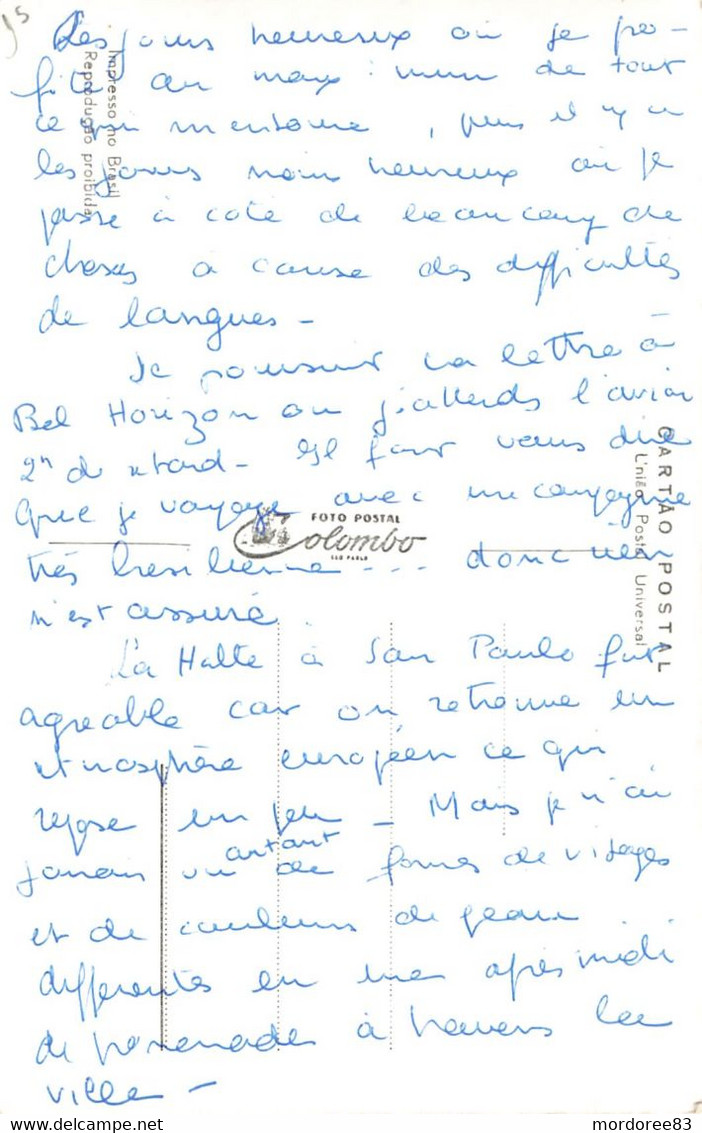 Les jours heureux où je pro-
fite au maximum de tout
ce qui m'entoure, puis il y a
les jours moins heureux où je
passe à coté de beaucoup de
choses à cause des difficultés
de langues -
Je poursuis ma lettre à
Bel Horizon où j'attends l'avion
2h de retard - Il faut vous dire
que je voyage avec une compagnie
très brésilienne ... donc rien
n'est assuré.
La Halte à San Paulo fut
agréable car on retrouve un
atmosphère européen ce qui
repose un peu - Mais je n'ai
jamais vu autant de formes de visages
et de couleurs de peau
différentes en une après midi
de promenades à travers la
ville -
Impresso no Brasil
Reprodução proibida
CARTÃO POSTAL
União Postal Universal
FOTO POSTAL
Colombo
SÃO PAULO
95
mordoree83